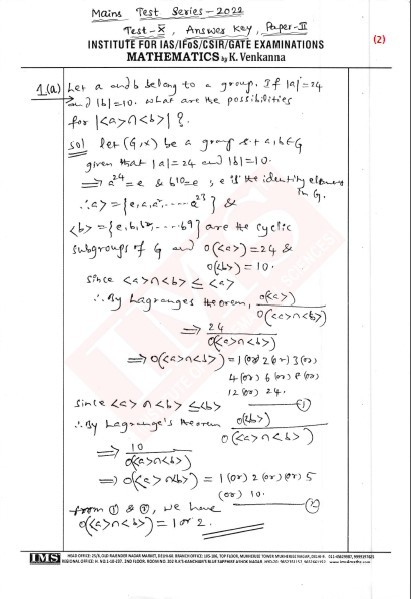 Mains Test Series - 2022
Test - X, Answer Key, Paper-II
(2)
INSTITUTE FOR IAS/IFoS/CSIR/GATE EXAMINATIONS
MATHEMATICS by K. Venkanna
1(a) Let a and b belong to a group. If |a| = 24
and |b| = 10. what are the possibilities
for |<a>∩<b>| ?
Sol let (G, x) be a group s.t a, b ∈ G
given that |a| = 24 and |b| = 10.
⇒ a^24 = e & b^10 = e ; e is the identity element
in G.
∴ <a> = {e, a, a², ...... a^23} &
<b> = {e, b, b², ..... b^9} are the cyclic
subgroups of G and o(<a>) = 24 &
o(<b>) = 10.
since <a>∩<b> ≤ <a>
∴ By Lagranges theorem, o(<a>) / o(<a>∩<b>)
⇒ 24 / o(<a>∩<b>)
⇒ o(<a>∩<b>) = 1 (or) 2 (or) 3 (or)
4 (or) 6 (or) 8 (or)
12 (or) 24.
since <a>∩<b> ≤ <b> — (1)
∴ By Lagrange's theorem o(<b>) / o(<a>∩<b>)
⇒ 10 / o(<a>∩<b>)
⇒ o(<a>∩<b>) = 1 (or) 2 (or) (or) 5
(or) 10.
— (2)
from ① & ②, we have
o(<a>∩<b>) = 1 or 2.
IMS
HEAD OFFICE: 25/8, OLD RAJENDER NAGAR MARKET, DELHI-60. BRANCH OFFICE: 105-106, TOP FLOOR, MUKHERJEE TOWER MUKHERJEE NAGAR, DELHI-9.